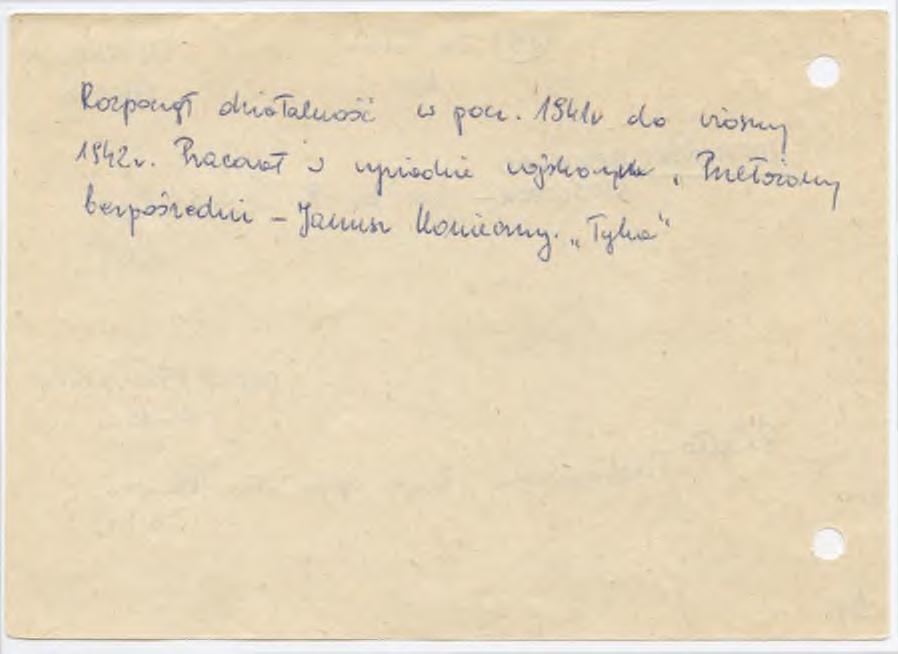 Rozpoczął działalność w pocz. 1941r do wiosny
1942r. Pracował w wywiadzie wojskowym. Przełożony
bezpośredni – Janusz Konieczny. „Tyka"